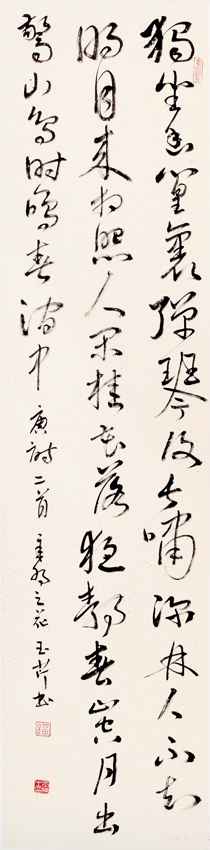 獨坐幽篁裏彈琴復長嘯深林人不知
明月来相照人闲桂花落夜靜春山空月出
驚山鳥时鳴春澗中 唐詩二首